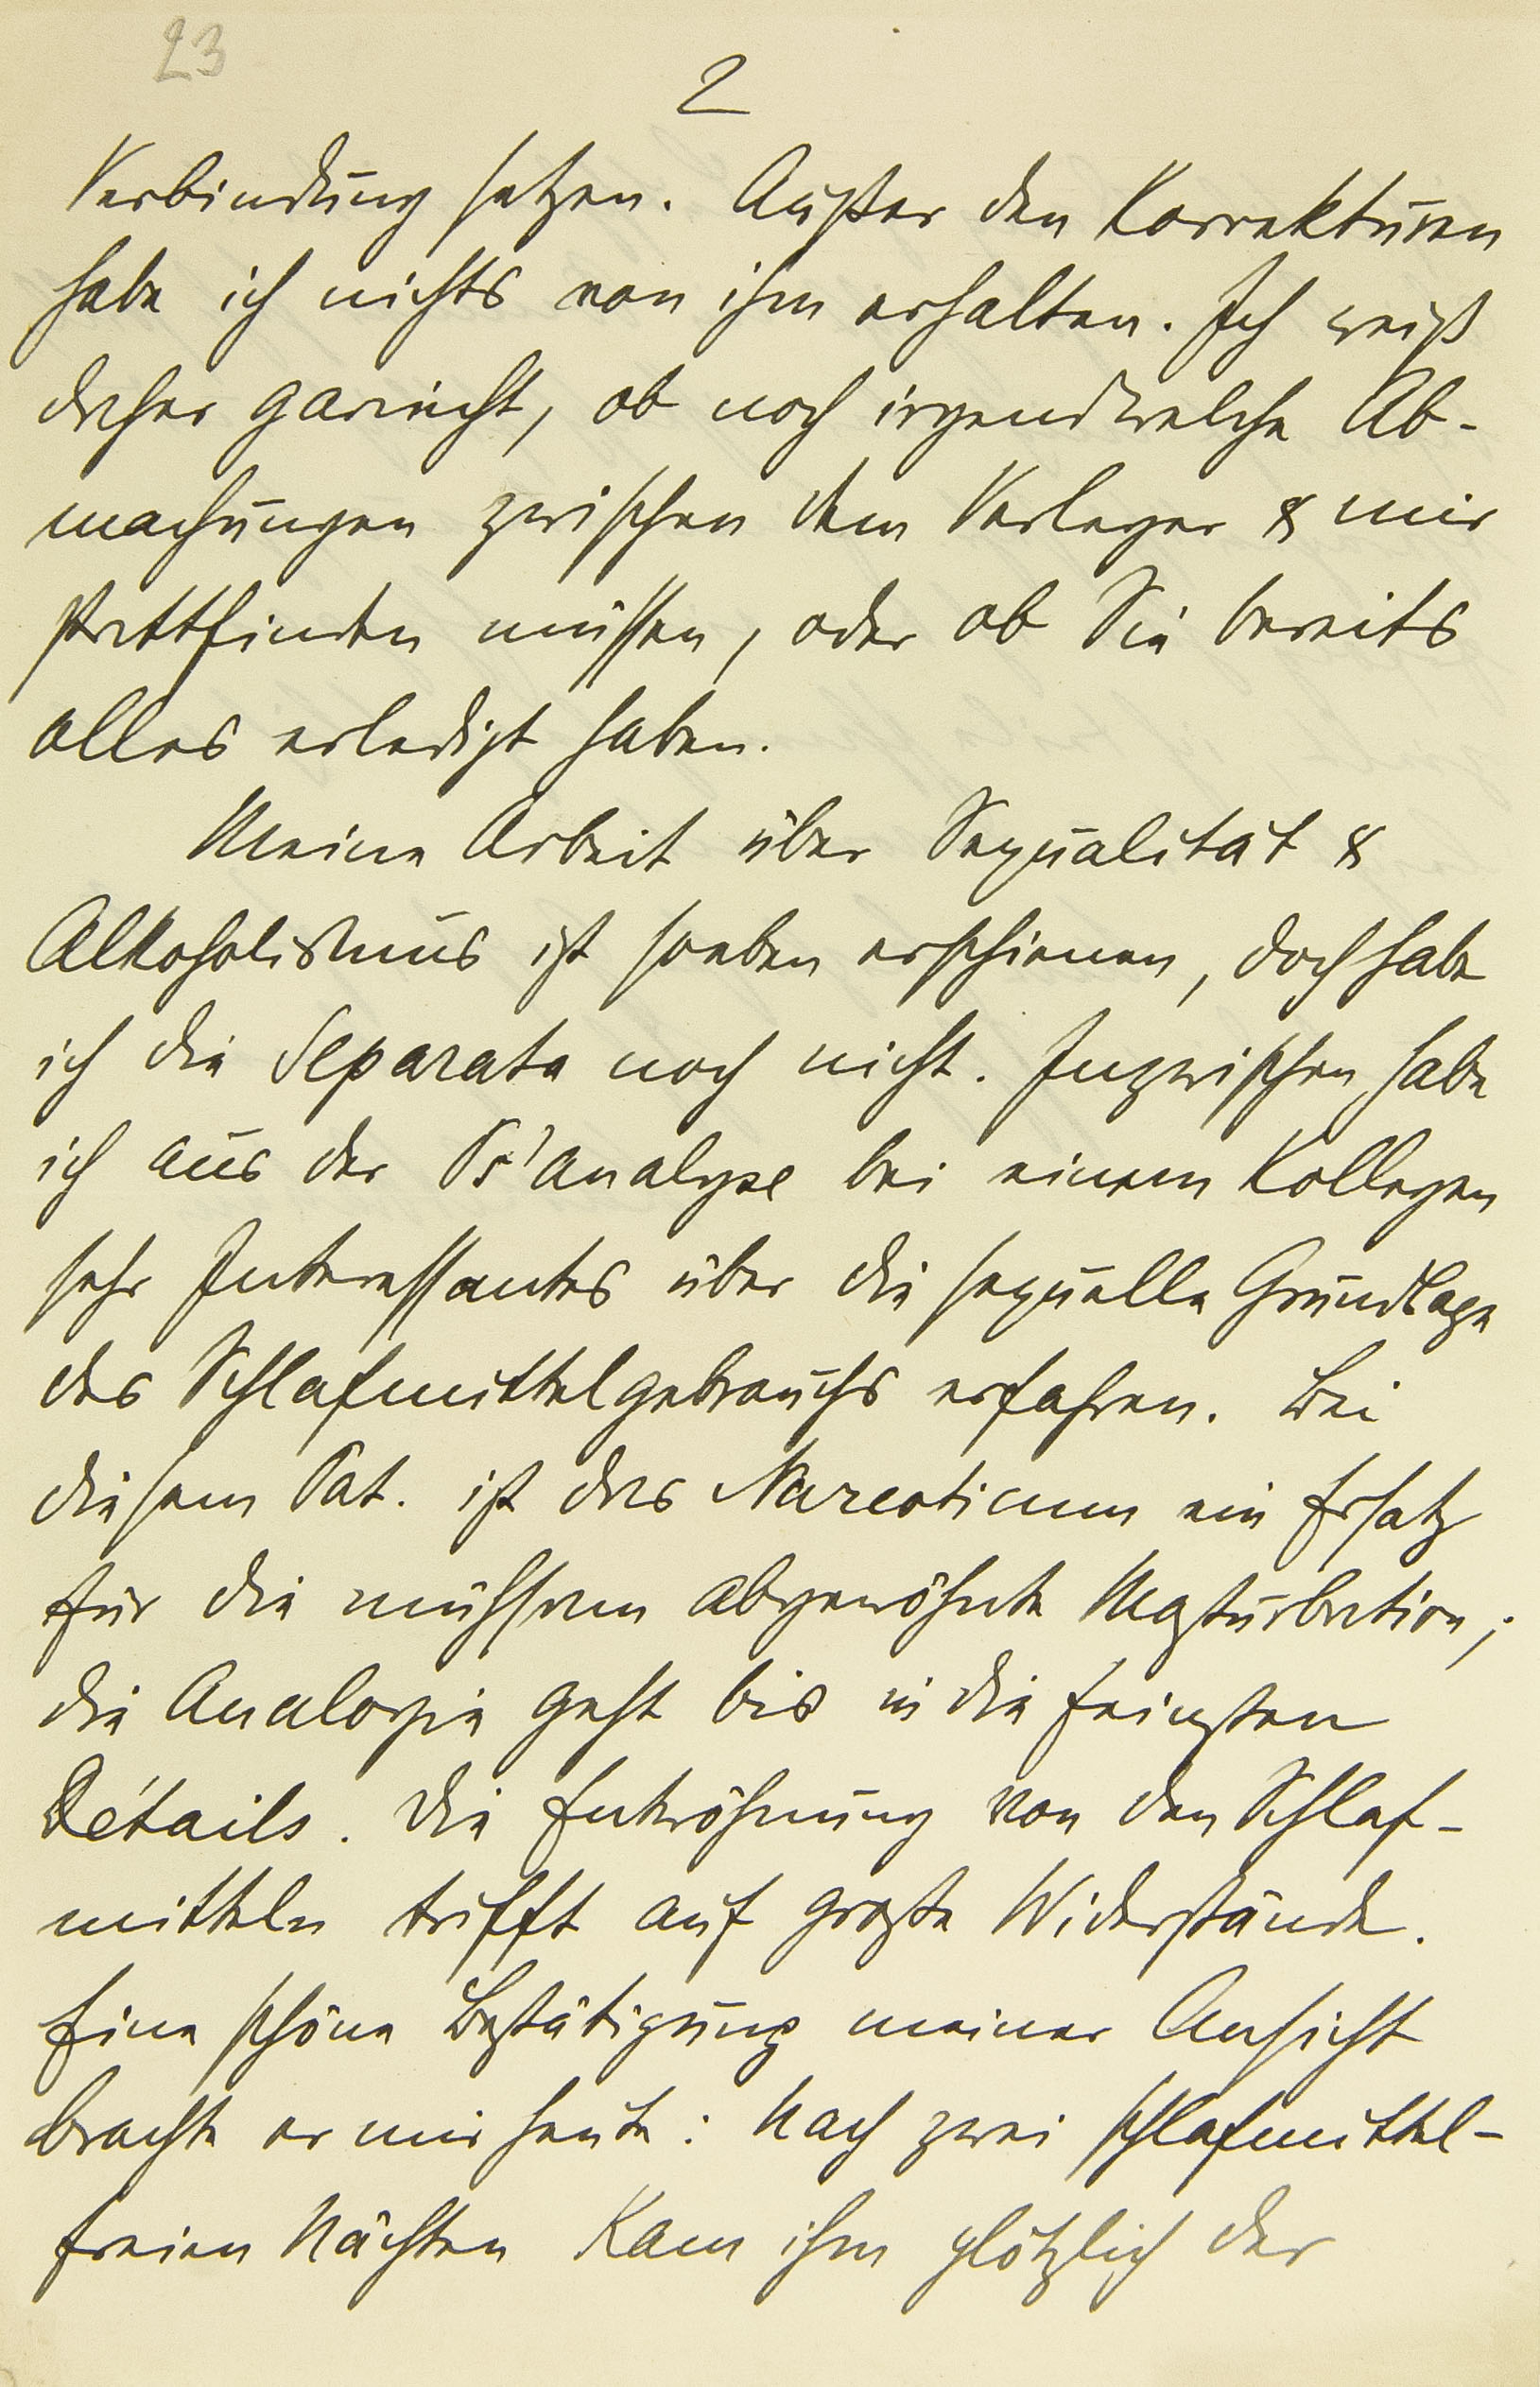 23
2
Verbindung setzen. Außer den Korrekturen
habe ich nichts von ihm erhalten. Ich weiß
daher garnicht, ob noch irgendwelche Ab-
machungen zwischen dem Verleger & mir
stattfinden müssen, oder ob Sie bereits
alles erledigt haben.
Meine Arbeit über Sexualität &
Alkoholismus ist soeben erschienen, doch habe
ich die Separata noch nicht. Inzwischen habe
ich aus der Ps'analyse bei einem Kollegen
sehr Interessantes über die sexuelle Grundlage
des Schlafmittelgebrauchs erfahren. Bei
diesem Pat. ist das Narcoticum ein Ersatz
für die mühsam abgewöhnte Masturbation;
die Analogie geht bis in die feinsten
Détails. Die Entwöhnung von den Schlaf-
mitteln trifft auf große Widerstände.
Eine schöne Bestätigung meiner Ansicht
brachte er mir heute: Nach zwei schlafmittel-
freien Nächten kam ihm plötzlich der